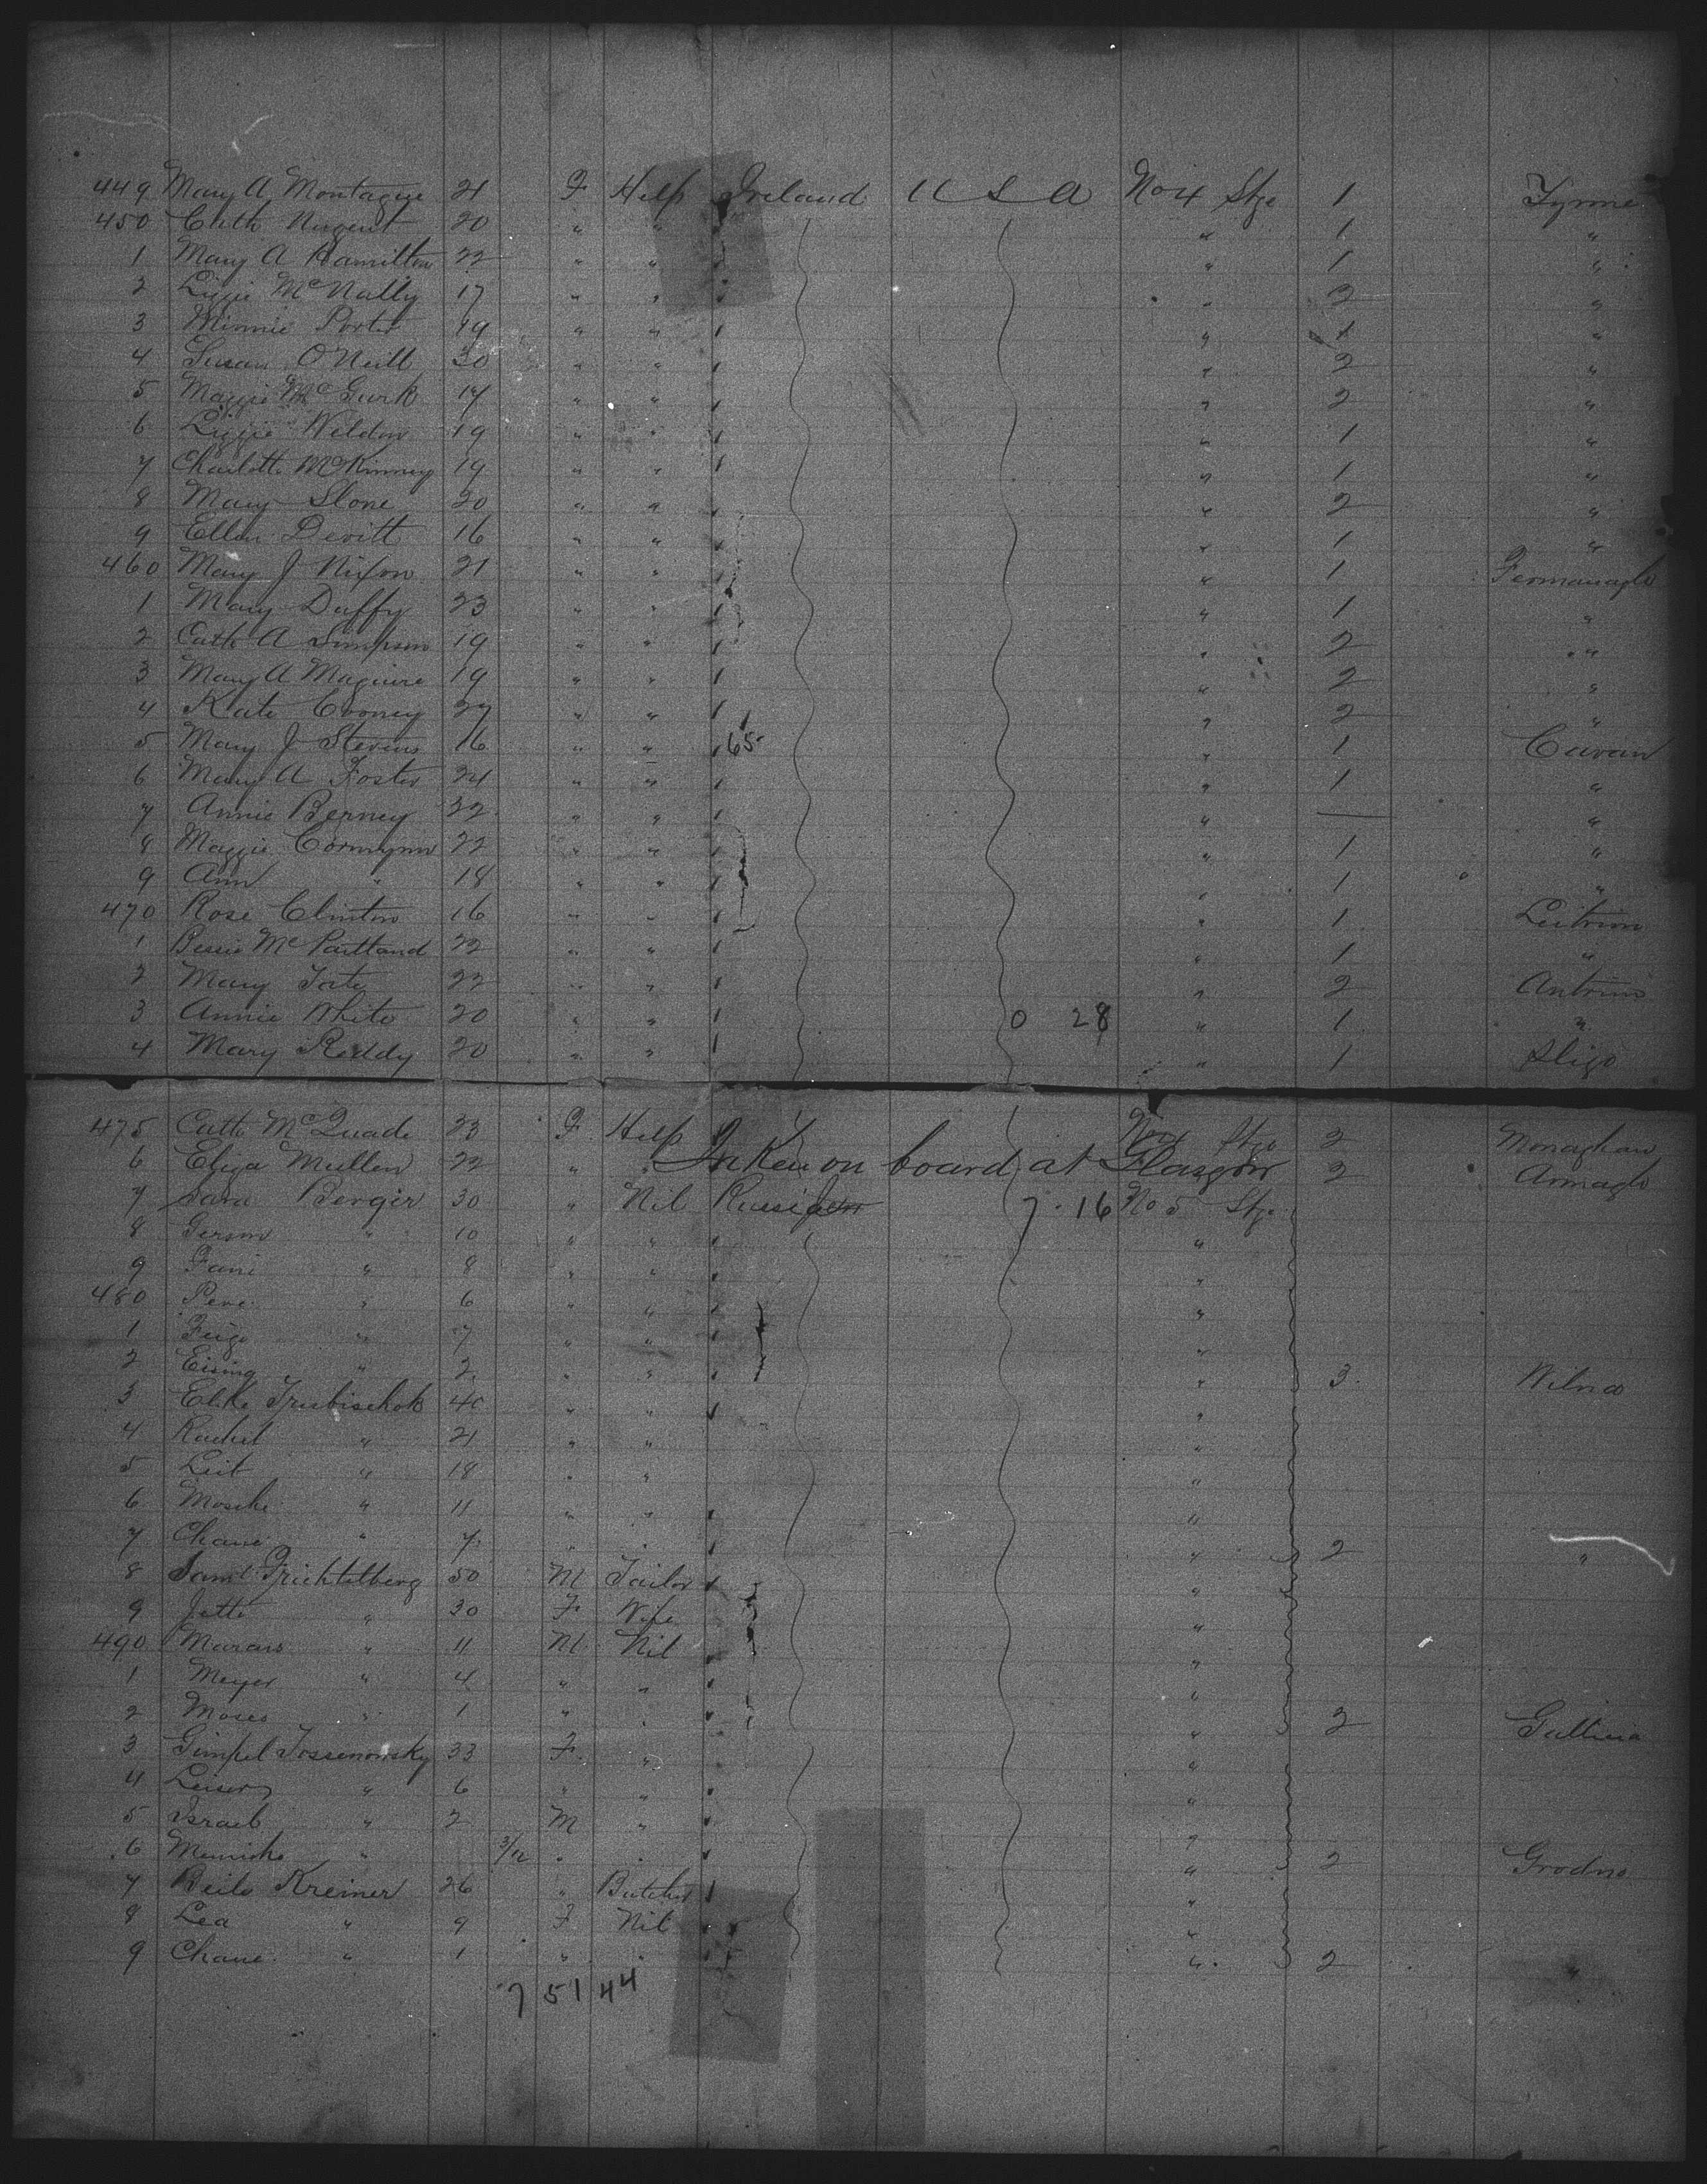 449 Mary A Montague 21 F Help Ireland U S A No 4 Stge 1 Tyrone
450 Cath Nugent 20 " " " 1 "
1 Mary A Hamilton 22 " " " 1 "
2 Lizzie McNally 17 " " " 2 "
3 Minnie Porter 19 " " " 1 "
4 Susan O'Neill 30 " " " 2 "
5 Maggie McGurk 17 " " " 2 "
6 Lizzie Weldon 19 " " " 1 "
7 Charlotte McKinney 19 " " " 1 "
8 Mary Slone 20 " " " 2 "
9 Ellen Devitt 16 " " " 1 "
460 Mary J Nixon 21 " " " 1 Fermanagh
1 Mary Duffy 23 " " " 1 "
2 Cath A Simpson 19 " " " 2 "
3 Mary A Maguire 19 " " " 2 "
4 Kate Cooney 27 " " " 2 "
5 Mary J Stevens 16 " " 65 " 1 Cavan
6 Mary A Foster 24 " " " 1 "
7 Annie Berney 32 " " " — "
8 Maggie 22 " " " 1 "
9 Ann " 18 " " " 1 "
470 Rose Clinton 16 " " " 1 Leitrim
1 Bessie McPartland 22 " " " 1 "
2 Mary 22 " " " 2 Antrim
3 Annie White 20 " " 0 28 " 1 "
4 Mary Reddy 20 " " " 1 Sligo
475 Cath McQuade 23 F Help No 4 Stge 2 Monaghan
6 Eliza Mullen 22 " " Taken on board at Glasgow 2 Armagh
7 Sara Berger 30 " Nil Russi 7 - 16 No 5 Stge
8 Gerson " 10 " " "
9 Fani " 8 " " "
480 " 6 " " "
1 Feige " 7 " " "
2 " 2 " " " 3 Wilna
3 Elke 40 " " "
4 Rachel " 21 " " "
5 Leib " 18 " " "
6 Mosche " 11 " " "
7 Chane " 7 " " " 2 "
8 Saml Frichtelberg 50 M Tailor "
9 Jette " 30 F Wife "
490 Marcus " 11 M Nil "
1 Meyer " 4 " " "
2 Moses " 1 " " " 2
3 Gimpel 33 F " "
4 Leiser " 6 " " "
5 Israel " 2 M " "
6 " 3/12 " " " 2 Grodno
7 Beile Kreimer 26 " Butcher "
8 Lea " 9 F Nil "
9 Chane " 1 " " " 2 "
7 51 44